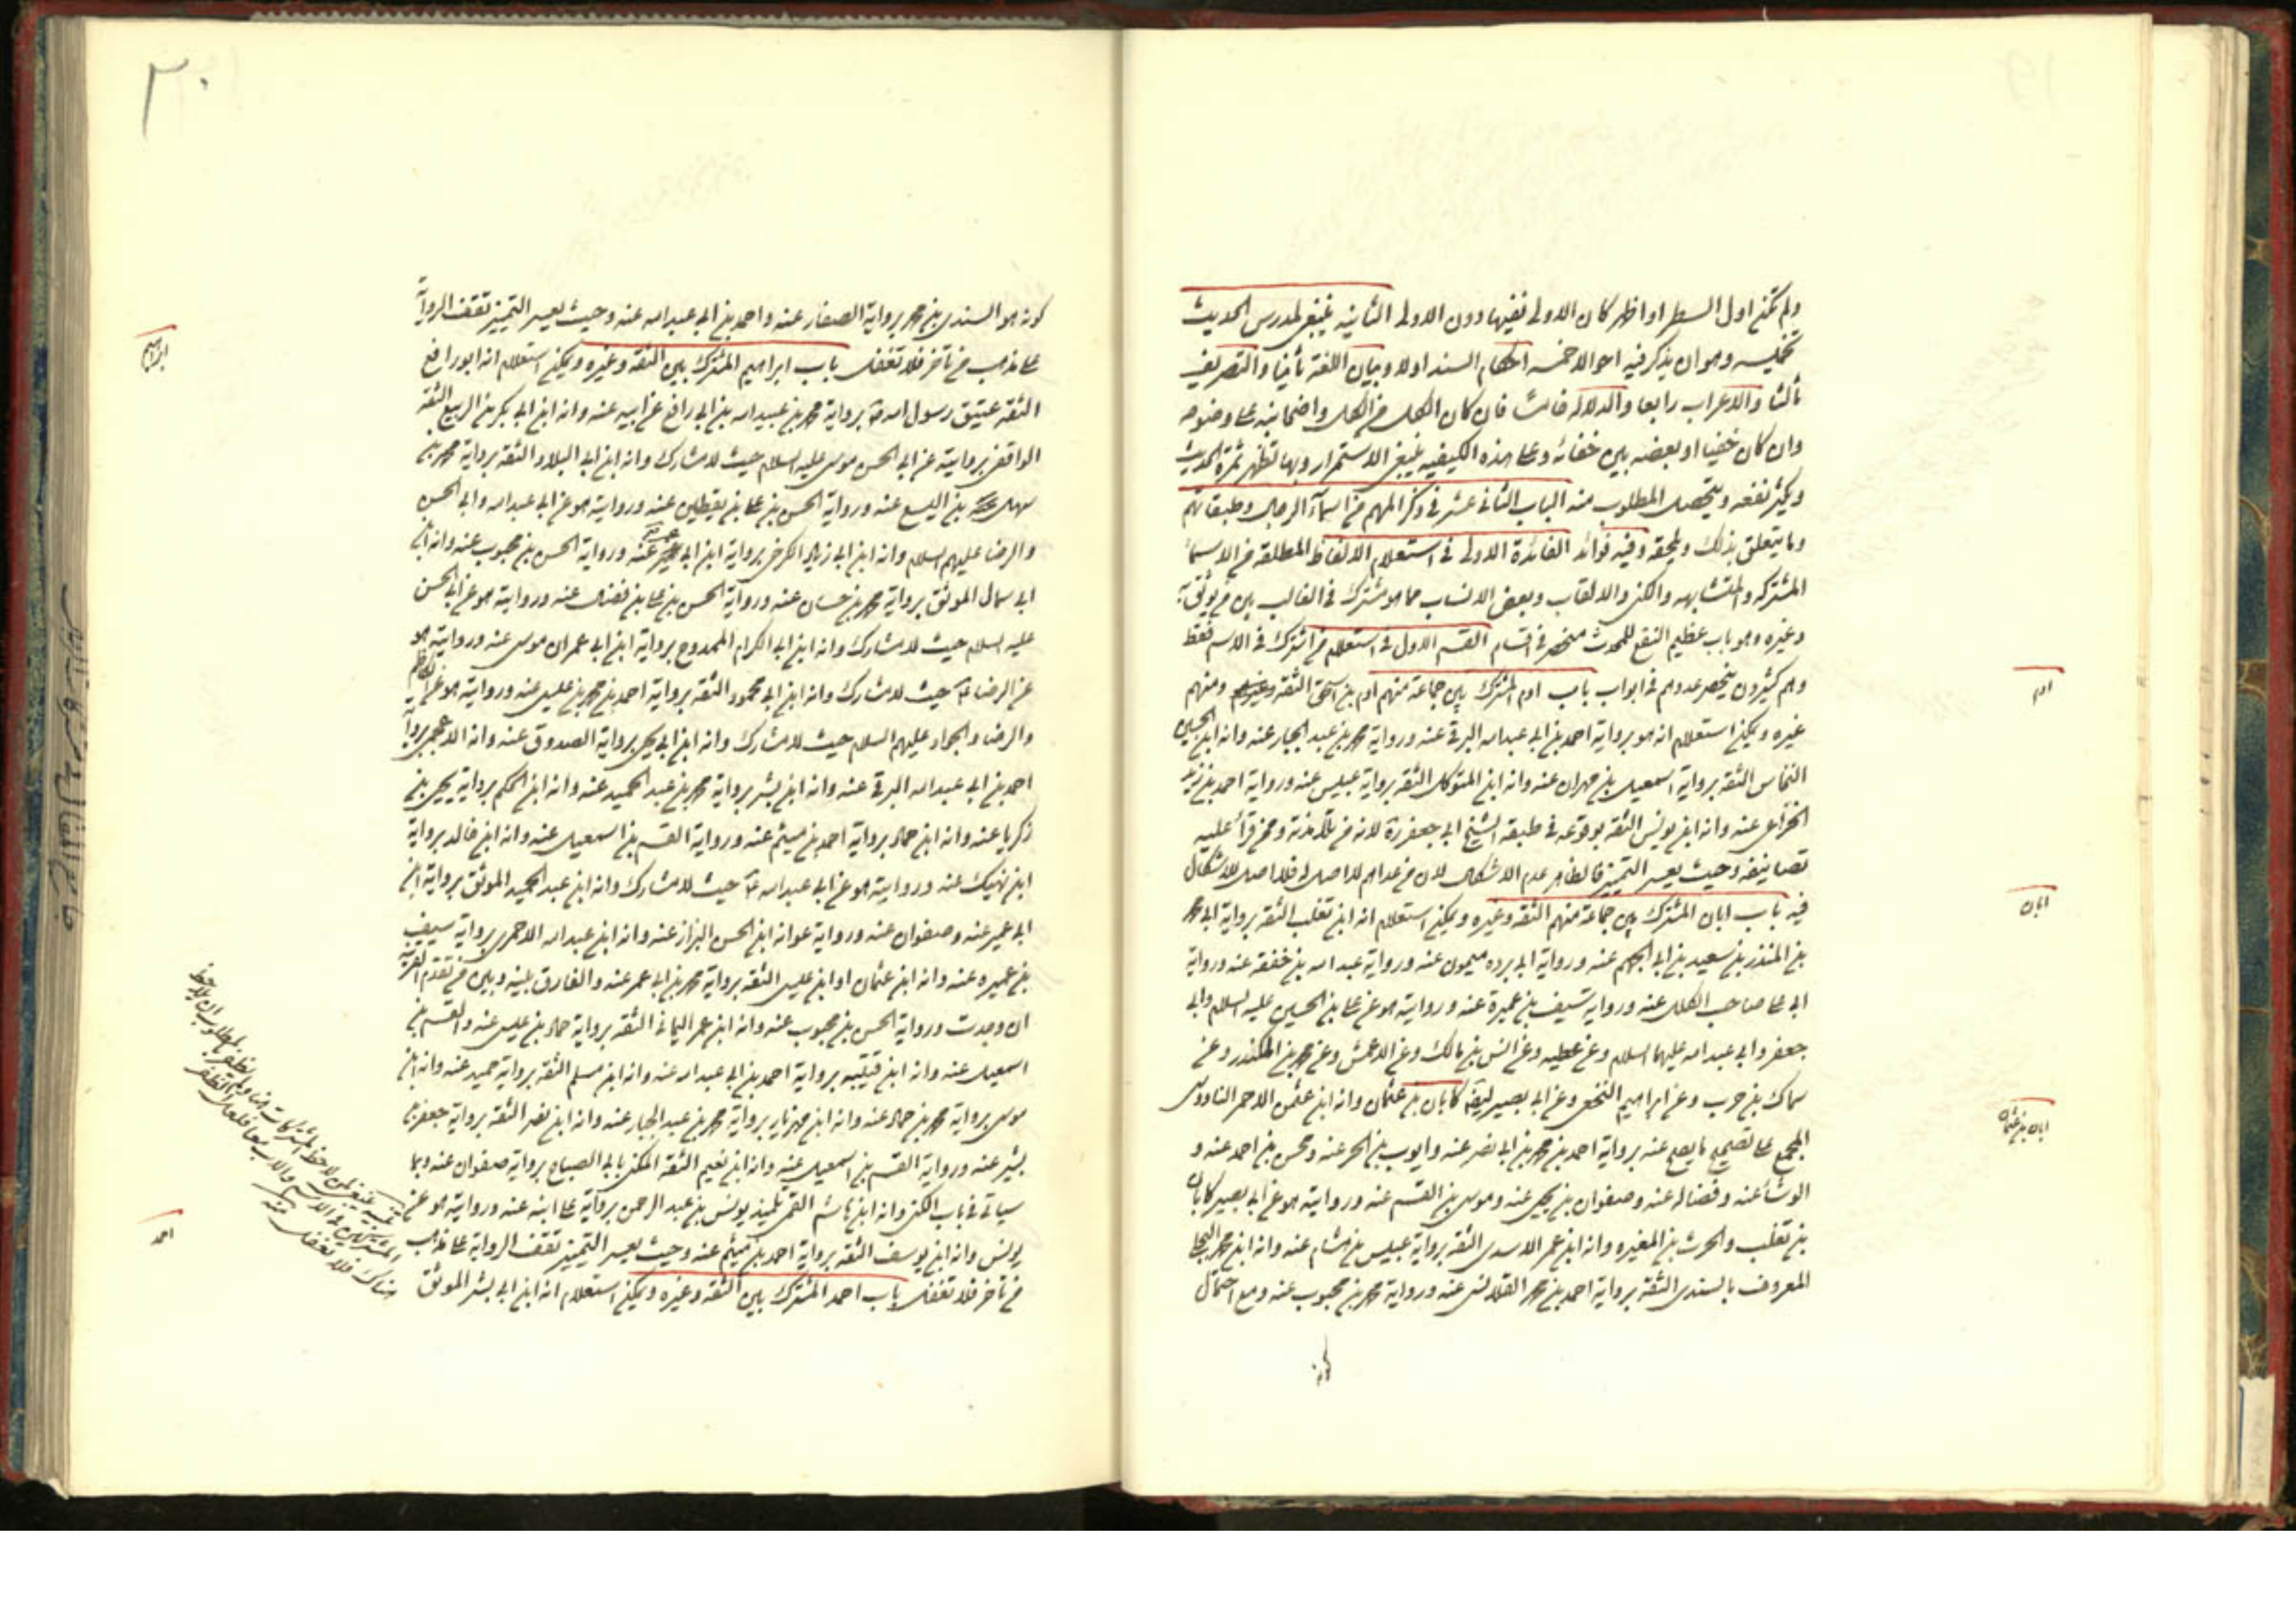 ولم تكن اول السطر او اظهر كان الاولى نفيها دون الاولى الثانيه ينبغي لمدرس الحديث
وهو ان يذكر فيه احوالا خمسه احكام السند اولا وبيان اللغة ثانيا والتصريف
ثالثا والاعراب رابعا والدلالة خامسا فان كان الكل واضحا نبه على وضوحه
وان كان خفيا او بعضه بين خفائه وعلى هذه الكيفيه ينبغي الاستمرار وبها تظهر ثمرة الحديث
ويكثر نفعه ويتحصل المطلوب منه الباب الثاني عشر في ذكر المهم من اسماء الرجال وطبقاتهم
وما يتعلق بذلك ويلحقه وفيه فوائد الفائدة الاولى في استعلام الالفاظ المطلقه من الاسماء
المشتركه والمتشابهه والكنى والالقاب وبعض الانساب مما هو مشترك في الغالب بين من يوثق به
وغيره وهو باب عظيم النفع للمحدث منحصر في اقسام القسم الاول في استعلام من اشترك في الاسم فقط
وهم كثيرون ينحصر عددهم في ابواب باب ادم المشترك بين جماعة منهم ادم بن اسحق الثقه ومنهم
غيره ويمكن استعلام انه هو برواية احمد بن ابي عبدالله البرقي عنه ورواية محمد بن عبد الجبار عنه وانه ابن الحسين
النخاس الثقه برواية اسمعيل بن مهران عنه وانه ابن المتوكل الثقه برواية عبيس عنه ورواية احمد بن زيد
الخزاعي عنه وانه ابن يونس الثقه بوقوعه في طبقه الشيخ ابي جعفر ره لانه من تلامذته وممن قرأ عليه
تصانيفه وحيث يعسر التميز فالظاهر عدم الاشكال لان من عداهم لا اصل له فلا اصل للاشكال
فيه باب ابان المشترك بين جماعة منهم الثقه وغيره ويمكن استعلام انه ابن تغلب الثقه برواية ابي محمد
بن المنذر بن سعيد بن ابي الجهم عنه ورواية ابي برده ميمون عنه ورواية عبد الله بن خفقه عنه ورواية
ابي على صاحب الكلل عنه ورواية سيف بن عميرة عنه وروايته هو عن على بن الحسين عليه السلام وابي
جعفر وابي عبد الله عليهما السلام وعن عطيه وعن انس بن مالك وعن الاعمش وعن محمد بن المنكدر وعن
سماك بن حرب وعن ابراهيم النخعي وعن ابي بصير كابان بن عثمان وانه ابن عثمن الاحمر الناووسى
المجمع على تصحيح ما يصح عنه برواية احمد بن محمد بن ابي نصر عنه وايوب بن الحر عنه ومحسن بن احمد عنه و
الوشا عنه وفضاله عنه وصفوان بن يحيى عنه وموسى بن القسم عنه وروايته هو عن ابي بصير كابان
بن تغلب والحرث بن المغيره وانه ابن عمر الاسدى الثقه برواية عبيس بن هشام عنه وانه ابن محمد البجلى
المعروف بالسندى الثقه برواية احمد بن محمد القلانسى عنه ورواية محمد بن محبوب عنه ومع احتمال
كونه
ادم
ابان
ابان بن عثمان
٣٠
كونه هو السندى بن محمد برواية الصفار عنه واحمد بن ابي عبدالله عنه وحيث يعسر التميز تقف الرواية
على مذهب من تاخر فلا تغفل باب ابراهيم المشترك بين الثقه وغيره ويمكن استعلام انه ابو رافع
الثقه عتيق رسول الله برواية محمد بن عبيد الله بن ابي رافع عن ابيه عنه وانه ابن ابي بكر بن الربيع الثقه
الواقفى بروايته عن ابي الحسن موسى عليه السلام حيث لا مشارك وانه ابن ابي البلاد الثقه برواية محمد بن
سهل بن اليسع عنه ورواية الحسن بن على بن يقطين عنه وروايته هو عن ابي عبد الله وابي الحسن
والرضا عليهم السلام وانه ابن ابي زياد الكرخى برواية ابن ابي عمير عنه ورواية الحسن بن محبوب عنه وانه ابن
ابي سمال الموثق برواية محمد بن حسان عنه ورواية الحسن بن على بن فضال عنه وروايته هو عن ابي الحسن
عليه السلام حيث لا مشارك وانه ابن ابي الكرام الممدوح برواية ابن ابي عمران موسى عنه وروايته هو
عن الرضا حيث لا مشارك وانه ابن ابي محمود الثقه برواية احمد بن محمد بن عيسى عنه وروايته هو عن الكاظم
والرضا والجواد عليهم السلام حيث لا مشارك وانه ابن ابي يحيى برواية الصدوق عنه وانه الاعجمى برواية
احمد بن ابي عبد الله البرقي عنه وانه ابن بشر برواية محمد بن عبد الحميد عنه وانه ابن الحكم برواية يحيى بن
زكريا عنه وانه ابن حماد برواية احمد بن ميثم عنه ورواية القسم بن اسمعيل عنه وانه ابن خالد برواية
ابن نهيك عنه وروايته هو عن ابي عبد الله حيث لا مشارك وانه ابن عبد الحميد الموثق برواية ابن
ابي عمير عنه وصفوان عنه ورواية عوانه ابن الحسن البزاز عنه وانه ابن عبد الله الاحمرى برواية سيف
بن عميره عنه وانه ابن عثمان او ابن عيسى الثقه برواية محمد بن ابي عمر عنه والفارق بينه وبين من تقدم القرينه
ان وجدت ورواية الحسن بن محبوب عنه وانه ابن عمر اليماني الثقه برواية حماد بن عيسى عنه والقسم بن
اسمعيل عنه وانه ابن قتيبه برواية احمد بن ابي عبد الله عنه وانه ابن مسلم الثقه برواية حميد عنه وانه ابن
موسى برواية محمد بن حماد عنه وانه ابن مهزيار برواية محمد بن عبد الجبار عنه وانه ابن نصر الثقه برواية جعفر بن
بشير عنه ورواية القسم بن اسمعيل عنه وانه ابن نعيم الثقه المكنى بابي الصباح برواية صفوان عنه وبما
سيأتي في باب الكنى وانه ابن هاشم القمى تلميذ يونس بن عبد الرحمن برواية على ابنه عنه وروايته هو عن
يونس وانه ابن يوسف الثقه برواية احمد بن ميثم عنه وحيث يعسر التميز تقف الرواية على مذهب
من تاخر فلا تغفل باب احمد المشترك بين الثقه وغيره ويمكن استعلام انه ابن ابي بشر الموثق
ابراهيم
احمد